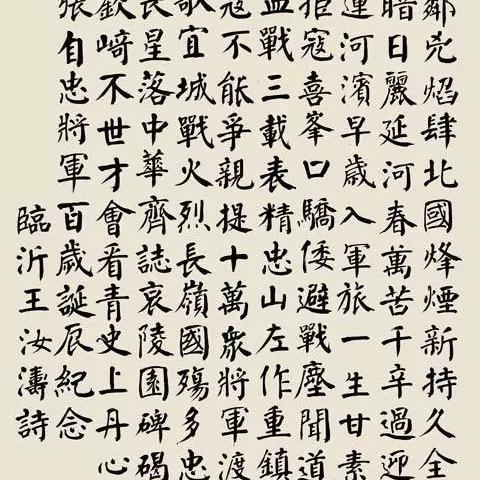 鄰兇焰肆北國烽煙新持久全
暗日麗延河春萬苦千辛過迎
運河濱早歲入軍旅一生甘素
拒寇喜峯口驕倭避戰塵聞道
血戰三載表精忠山左作重鎮
寇不能爭親提十萬衆將軍渡
宜城戰火烈長嶺國殤多忠
長星落中華齊誌哀陵園碑碣
欽崎不世才會看青史上丹心
張自忠將軍百歲誕辰紀念
臨沂王汝濤詩